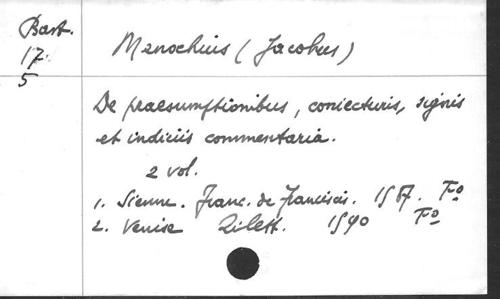 Bast.
17.
5
Menochius (Jacobus)
De praesumptionibus, coniecturis, signis
et indiciis commentaria.
2 vol.
1. Sienne. Franc. de Francisis. 1587. Fo
2. Venise Zilett. 1590 Fo